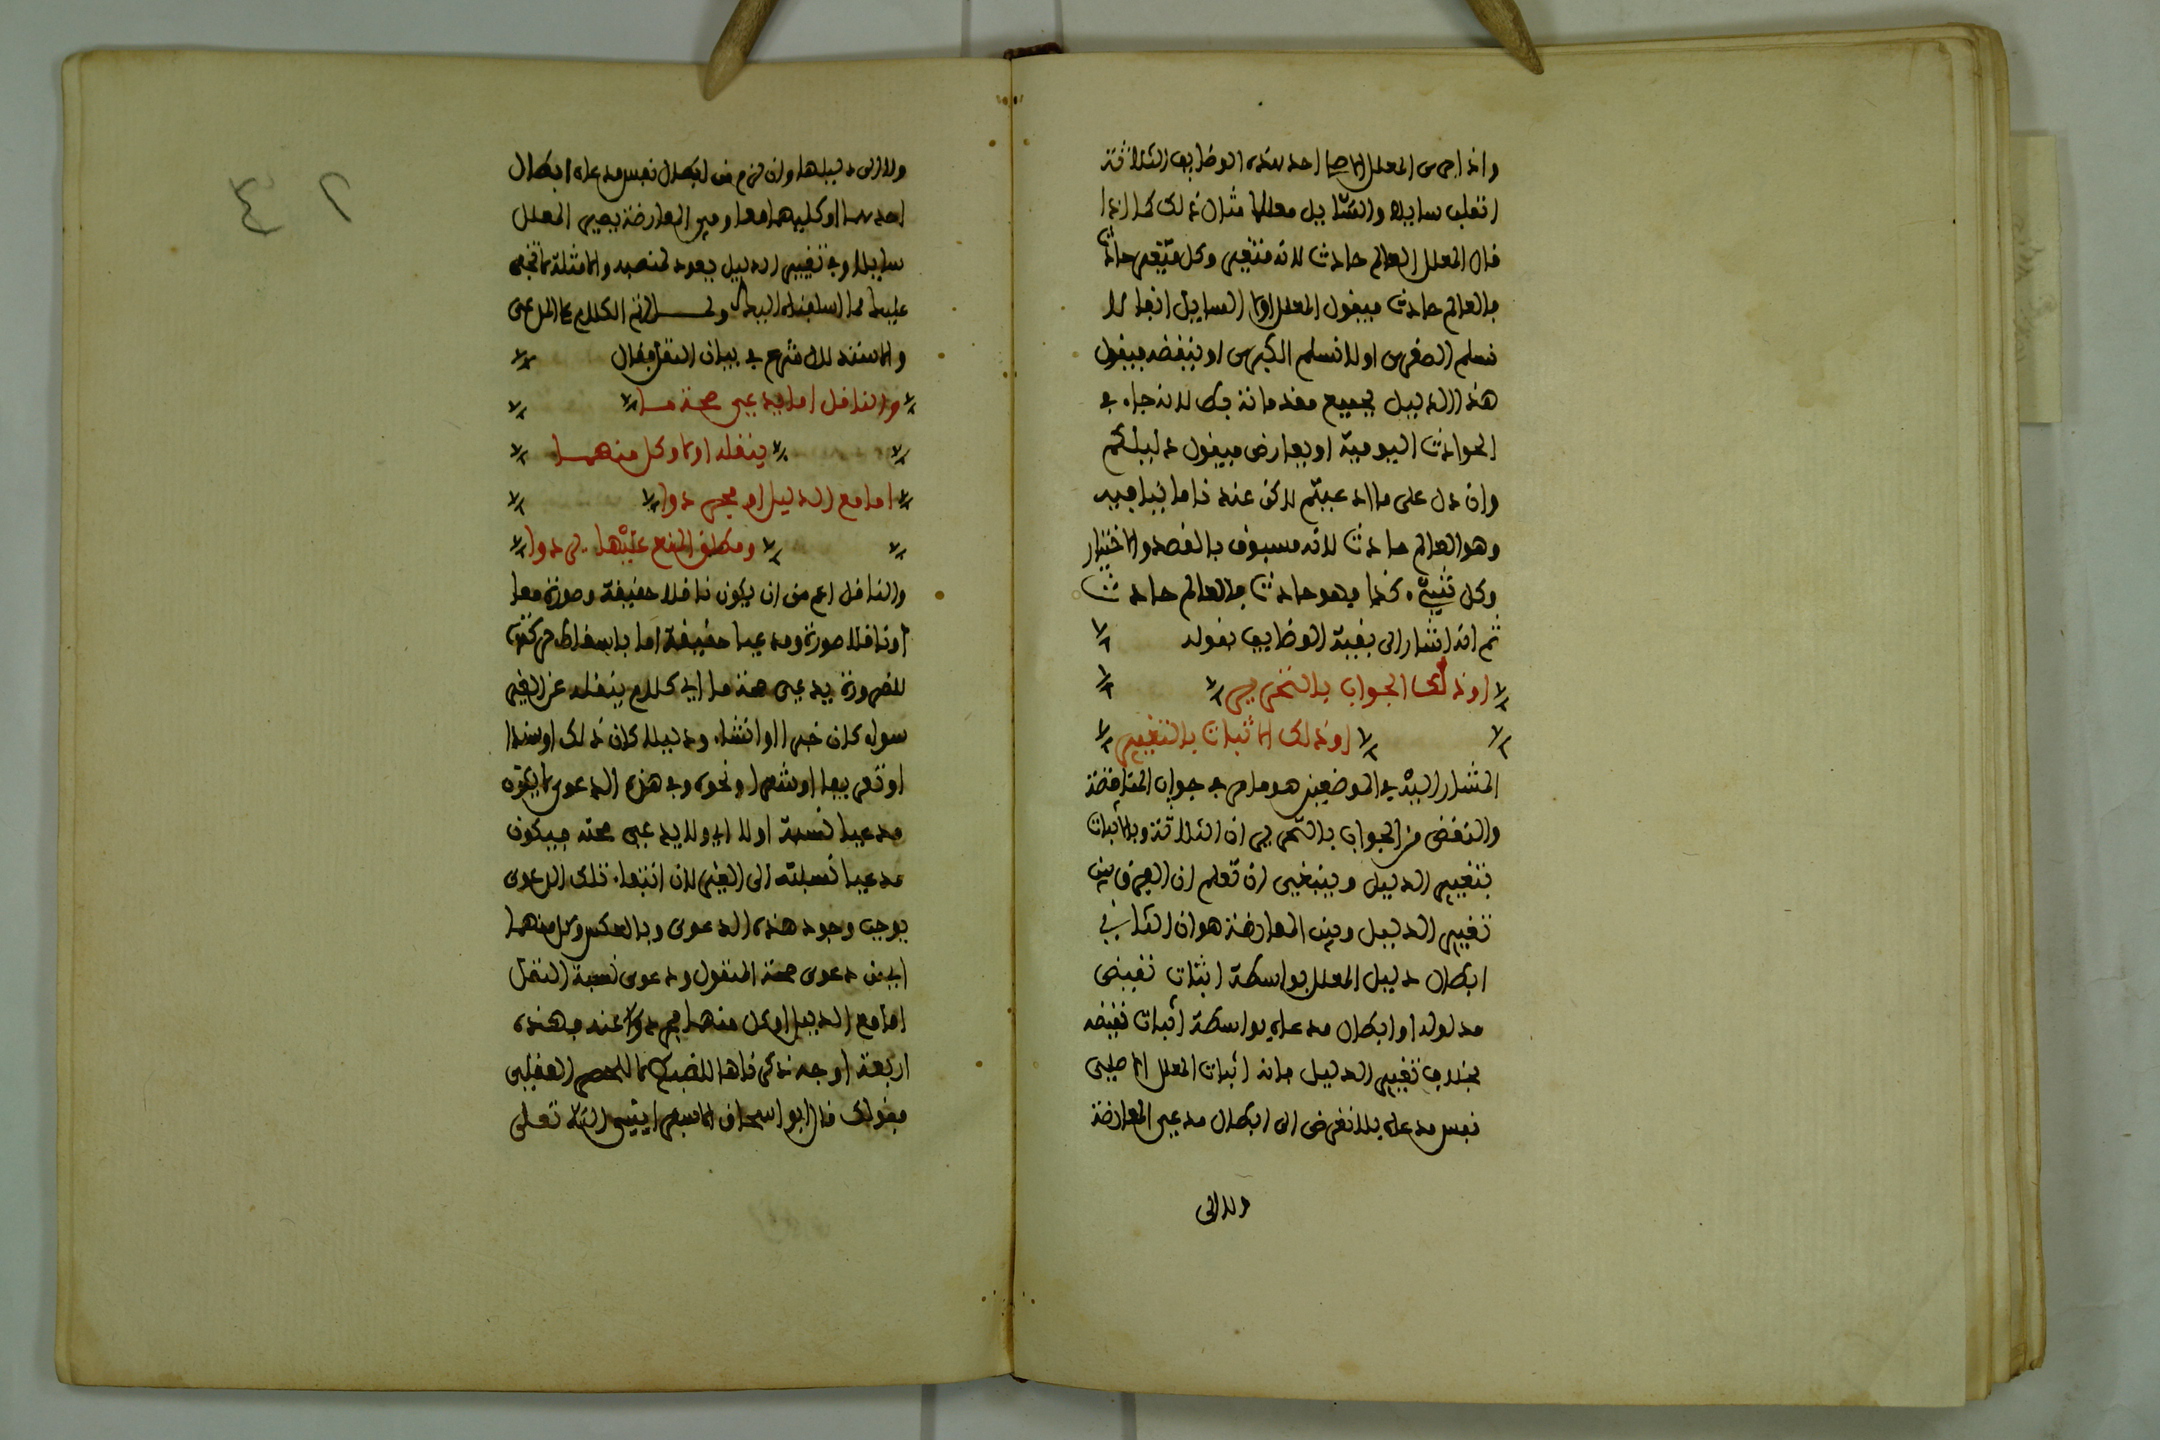 واذا اجرى المعلل الاصلي احد هذه الوظايف الثلاثة
انقلب سايلا والسايل معللا مثال ذلك كله اذا
قال المعلل العالم حادث لانه متغير وكل متغير حادث
فالعالم حادث فيقول المعلل اولا السايل انفا لا
نسلم الصغرى او لا نسلم الكبرى او ينقضه فيقول
هذا الدليل بجميع مقدماته باطل لانه جار في
الحوادث اليومية او يعارض فيقول دليلكم
وان دل على ما ادعيتم لكن عندنا ما ينافيه
وهو العالم حادث لانه مسبوق بالقصد والاختيار
وكل شيء كذا فهو حادث فالعالم حادث
ثم انه اشار الى بقية الوظايف بقوله
او ذلك الجواب بالتحرير
او ذلك الاثبات بالتغيير
المشار اليه في الموضعين هو ما مر في جواب المناقضة
والنقض من الجواب بالتحرير ان الثلاثة وبالاثبات
بتغيير الدليل وينبغي ان تعلم ان الفرق بين
تغيير الدليل وبين المعارضة هو ان الثاني
ابطال دليل المعلل بواسطة اثبات نقيض
مدلوله او ابطال مدعاه بواسطة اثبات نقيضه
بخلاف تغيير الدليل فانه اثبات المعلل الاصلي
نفس مدعاه بلا تعرض الى ابطال مدعى المعارضة
ولا الى
ولا الى دليلها وان لزم من ابطال نفس مدعاه ابطال
احدهما او كليهما معا وفي المعارضة يصير المعلل
سايلا وفي تغيير الدليل يعود لمنصبه والامثلة لا تخفى
عليك مما اسلفناه اليك ولما تم الكلام على المدعى
والاستدلال شرع في بيان النقل فقال
والناقل اما يدعي صحة ما
ينقله او لا وكل منهما
اما مع الدليل او مجردا
ومطلق المنع عليها
والناقل اعم من ان يكون ناقلا حقيقة وصورة معا
او ناقلا صورة ومدعيا حقيقة اما باسقاط حركته
للضرورة يدعي صحة ما اي كلام ينقله عن الغير
سواء كان خبرا او انشاء ودليلا كان ذلك او سندا
او تعريفا او شعرا ونحوه وفي هذه الدعوى لا يكون
مدعيا نسبة اولا اي ولا يدعي صحته فيكون
مدعيا نسبته الى الغير لان انتفاء تلك الدعوى
يوجب وجود هذه الدعوى وبالعكس وكل منهما
اي من دعوى صحة المنقول ودعوى نسبة النقل
اما مع الدليل او كل منهما مجردا عنه فهذه
اربعة اوجه ذكرناها للضبط لا للحصر العقلي
فقولك قال ابو اسحاق الاسفرايني الله تعلى